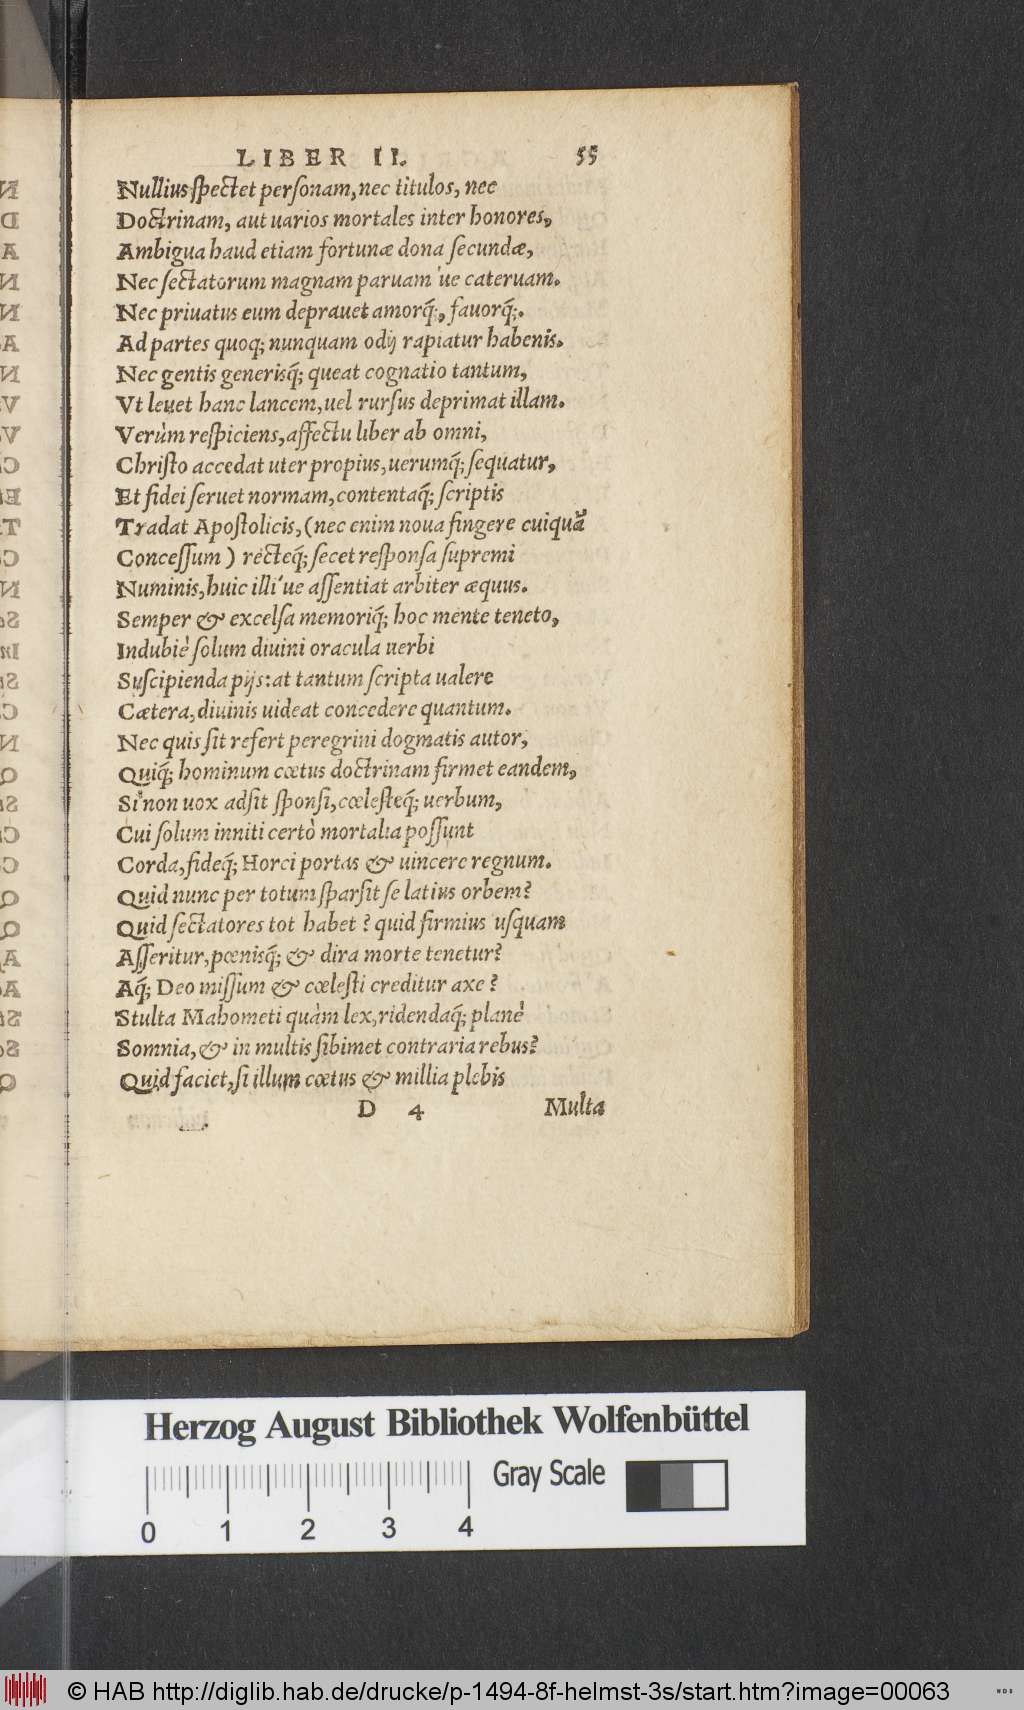 LIBER II. 55
Nullius spectet personam, nec titulos, nec
Doctrinam, aut uarios mortales inter honores,
Ambigua haud etiam fortunæ dona secundæ,
Nec sectatorum magnam paruam'ue cateruam.
Nec priuatus eum deprauet amorq́;, fauorq́;.
Ad partes quoq; nunquam odij rapiatur habenis.
Nec gentis generisq́; queat cognatio tantum,
Vt leuet hanc lancem, uel rursus deprimat illam.
Verùm respiciens, affectu liber ab omni,
Christo accedat uter propius, uerumq́; sequatur,
Et fidei seruet normam, contentaq́; scriptis
Tradat Apostolicis, (nec enim noua fingere cuiquã
Concessum) rectéq́; secet responsa supremi
Numinis, huic illi'ue assentiat arbiter æquus.
Semper & excelsa memoriq́; hoc mente teneto,
Indubiè solum diuini oracula uerbi
Suscipienda pijs: at tantum scripta ualere
Cætera, diuinis uideat concedere quantum.
Nec quis sit refert peregrini dogmatis autor,
Quiq́; hominum cœtus doctrinam firmet eandem,
Si non uox adsit sponsi, cœlesteq́; uerbum,
Cui solum inniti certò mortalia possunt
Corda, fideq́; Horci portas & uincere regnum.
Quid nunc per totum sparsit se latius orbem?
Quid sectatores tot habet? quid firmius usquam
Asseritur, pœnisq́; & dira morte tenetur?
Aq́; Deo missum & cœlesti creditur axe?
Stulta Mahometi quàm lex, ridendaq́; planè
Somnia, & in multis sibimet contraria rebus?
Quid faciet, si illum cœtus & millia plebis
D 4 Multa
Herzog August Bibliothek Wolfenbüttel
Gray Scale
0 1 2 3 4
© HAB http://diglib.hab.de/drucke/p-1494-8f-helmst-3s/start.htm?image=00063